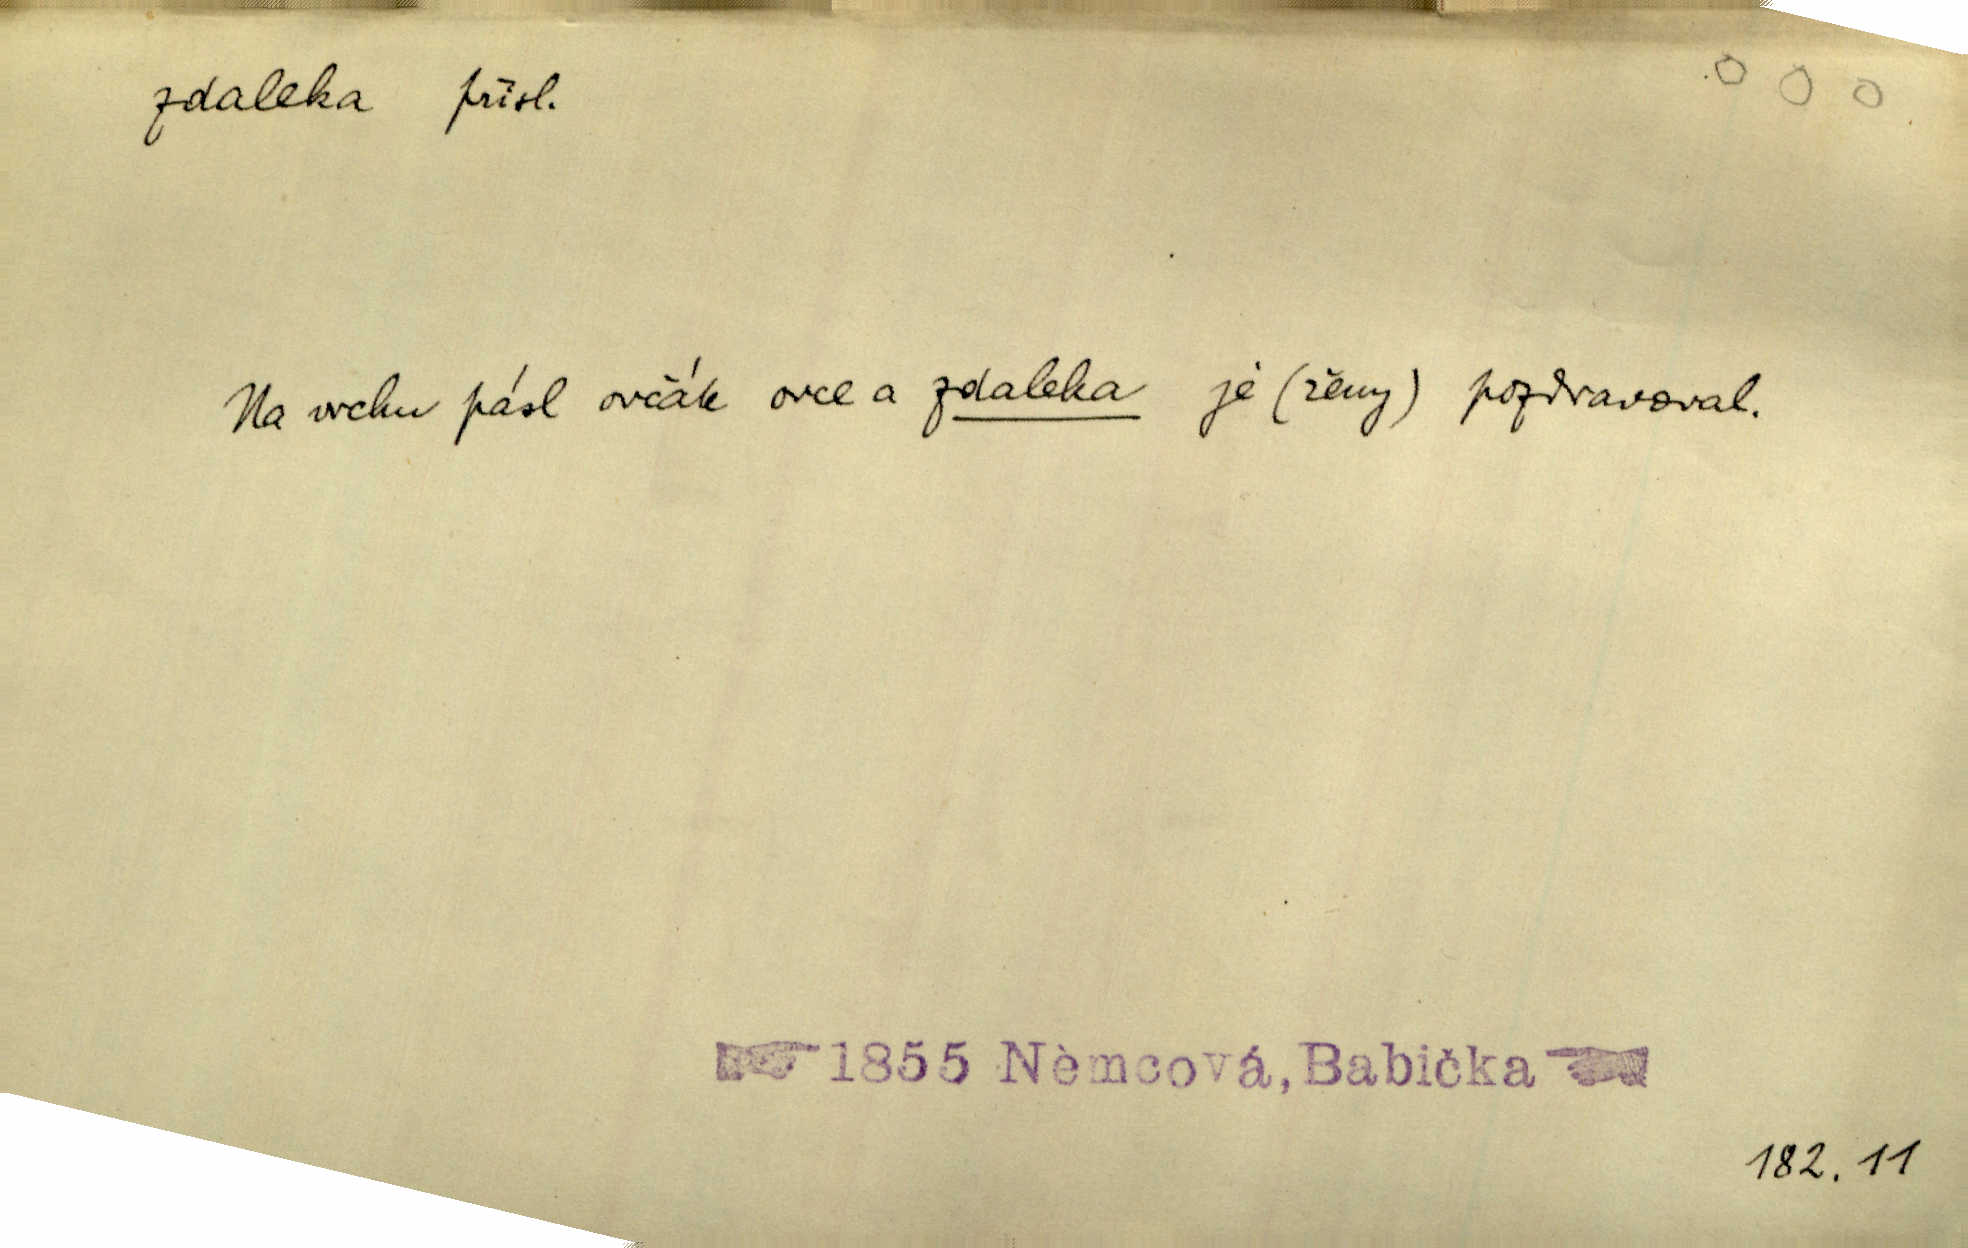 zdaleka přísl.
Na vrchu pásl ovčák ovce a zdaleka je (ženy) pozdravoval.
1855 Němcová, Babička
182. 11